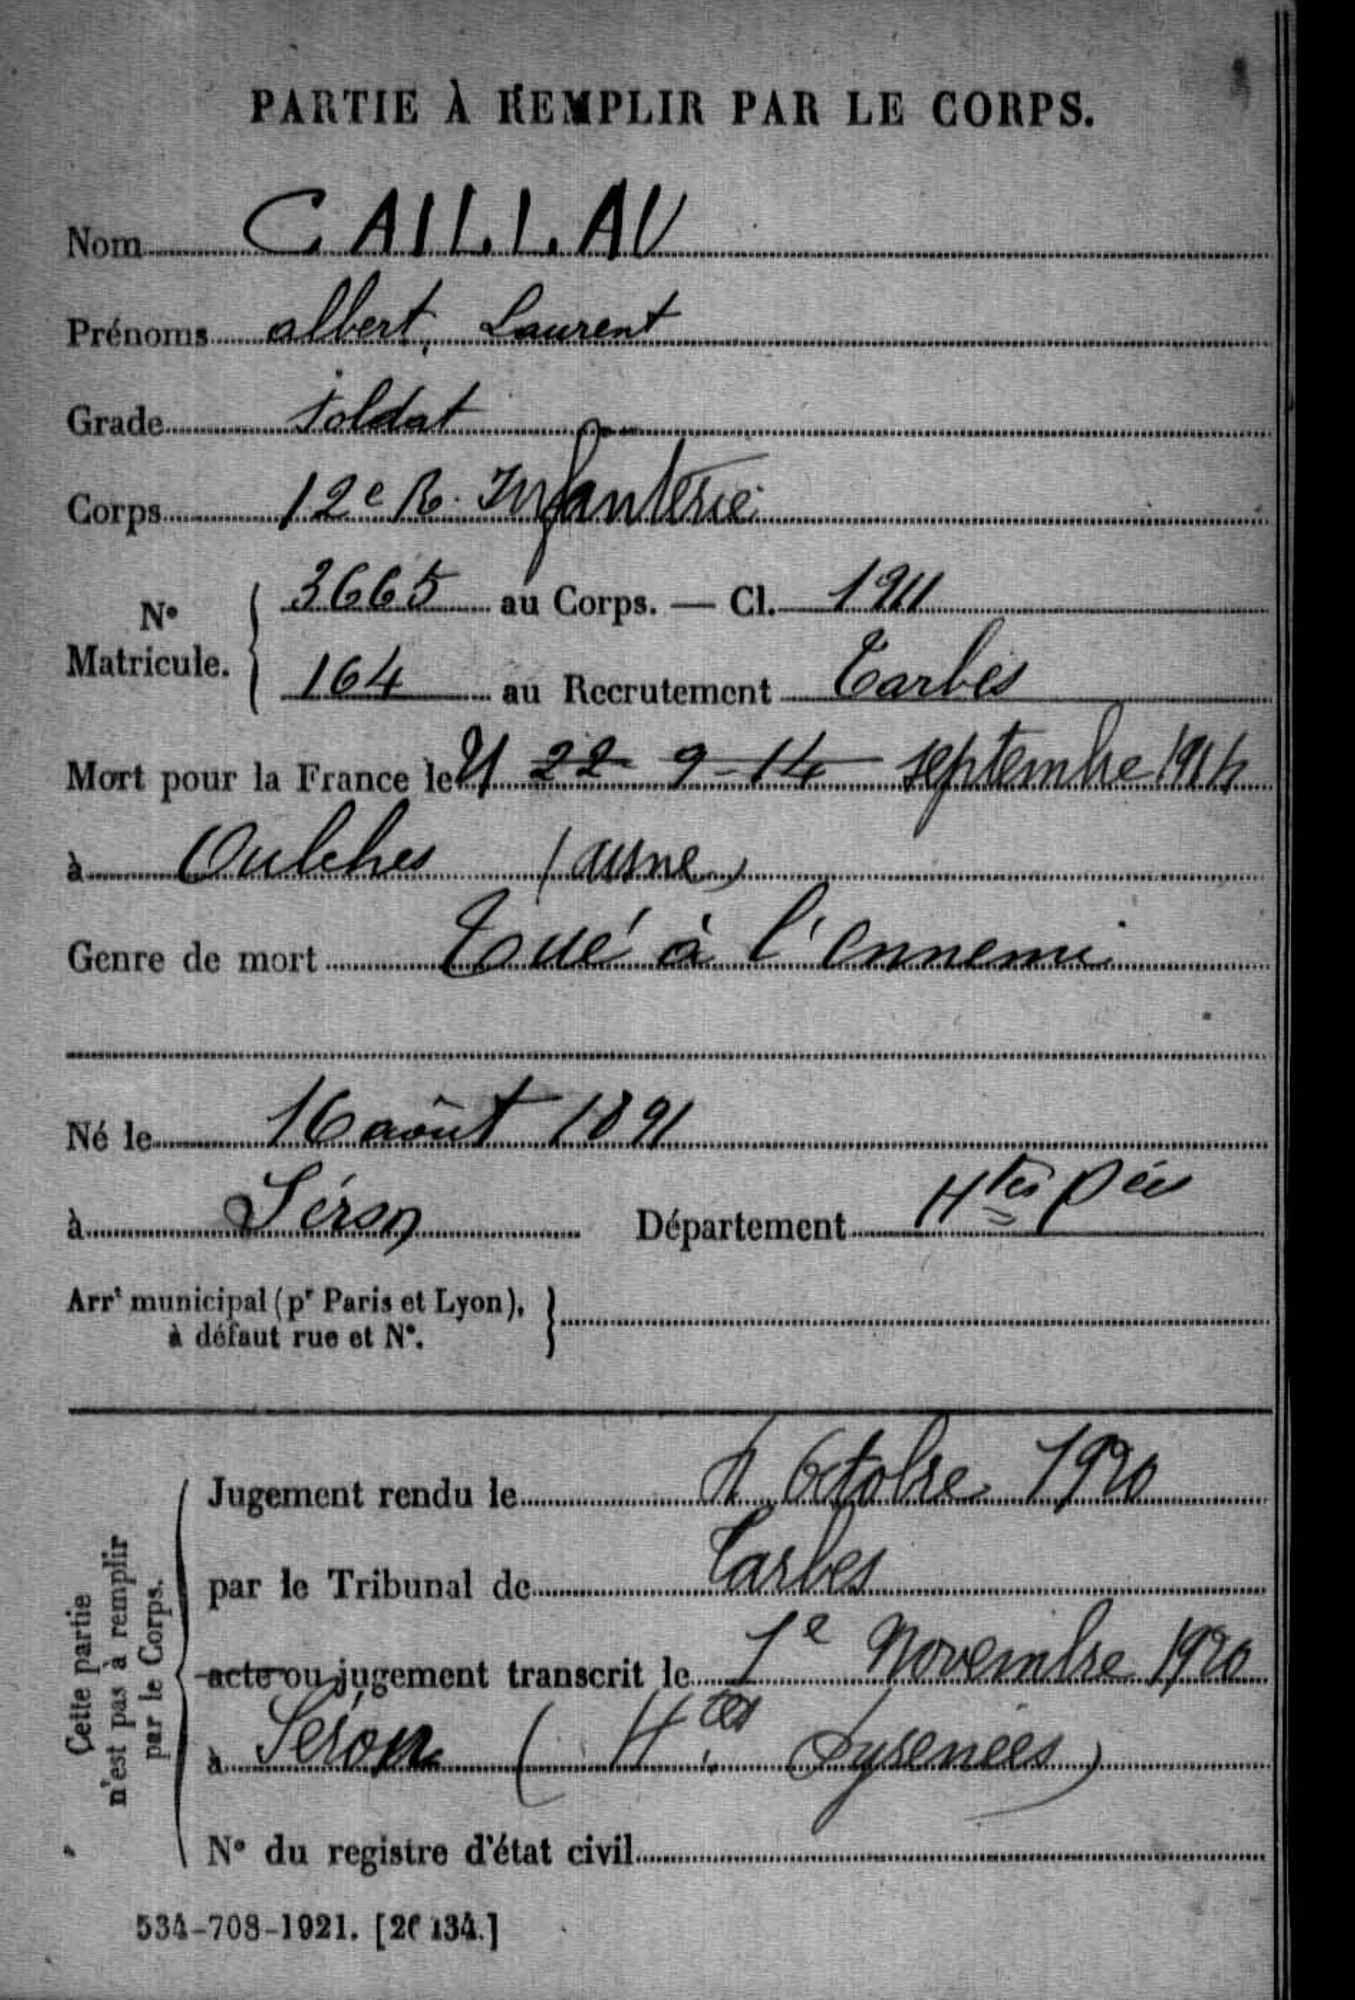 PARTIE À REMPLIR PAR LE CORPS.
Nom CAILLAU
Prénoms albert, Laurent
Grade Soldat
Corps 12e R. Infanterie
N° Matricule. { 3665 au Corps. — Cl. 1911
164 au Recrutement Tarbes
Mort pour la France le 22-9-14 septembre 1914
à Oulches (aisne)
Genre de mort Tué à l'ennemi
Né le 16 août 1891
à Séron Département Htes Pées
Arrt municipal (pr Paris et Lyon), à défaut rue et N°.
Cette partie n'est pas à remplir par le Corps.
Jugement rendu le Octobre 1920
par le Tribunal de Tarbes
acte ou jugement transcrit le 1e Novembre 1920
à Séron (Htes Pyrénées)
N° du registre d'état civil
534-708-1921. [26134.]